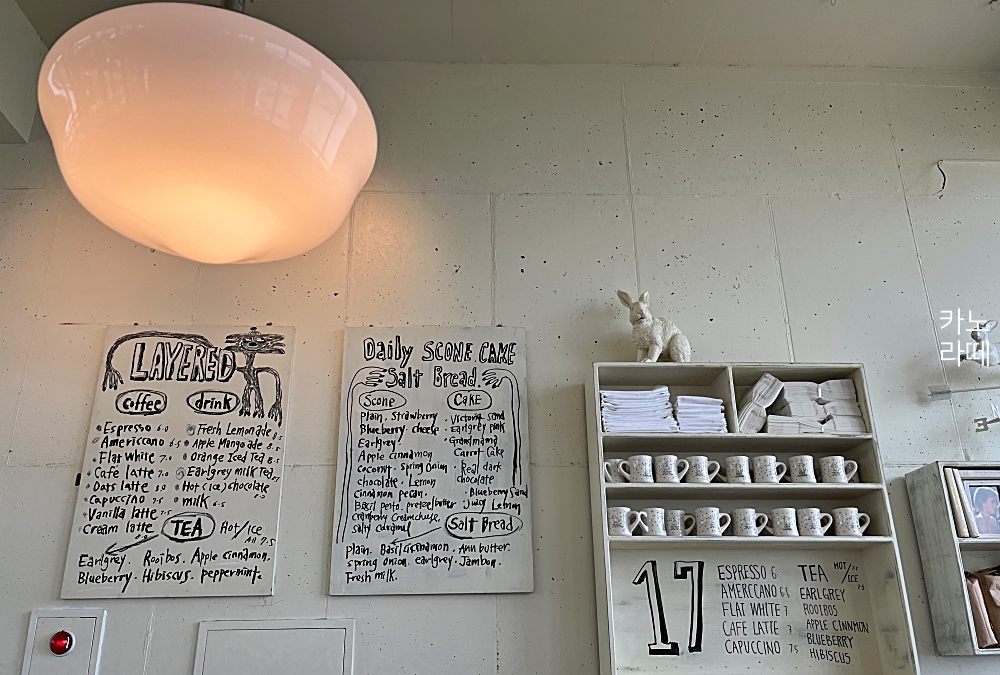 LAYERED
Coffee drink
Espresso 6.0
Americcano 6.5
Flat white 7.0
Cafe latte 7.0
Oats latte
Capuccino 7.5
Vanilla latte
Cream latte
Fresh Lemonade
Apple Mangoade
Orange Iced Tea
Earlgrey milk Tea
Hot (ice) chocolate
milk 6.5
TEA Hot/ICE
All 7.5
Earlgrey. Rooibos. Apple cinnamon.
Blueberry. Hibiscus. peppermint.
Daily SCONE CAKE
Salt Bread.
Scone
Plain. Strawberry
Blueberry. cheese
Earlgrey.
Apple cinnamon
coconut. Spring Onion
chocolate. Lemon
Cinnamon pecan.
Basil pesto. pretzel butter
cranberry Creamcheese.
salty caramel
CAKE
Victoria Sand
Earlgrey pink
Grandmama
Carrot Cake
Real dark
chocolate
Blueberry Sand
Juicy Lemon
Salt Bread
Plain. Basil. cinnamon. Ann butter.
spring onion. earlgrey. Jambon.
Fresh milk.
17
ESPRESSO 6
AMERCCANO 6.5
FLAT WHITE 7
CAFE LATTE 7
CAPUCCINO 7.5
TEA HOT/ICE
7.5
EARLGREY
ROOIBOS
APPLE CINNMON
BLUEBERRY
HIBISCUS
카노
라떼